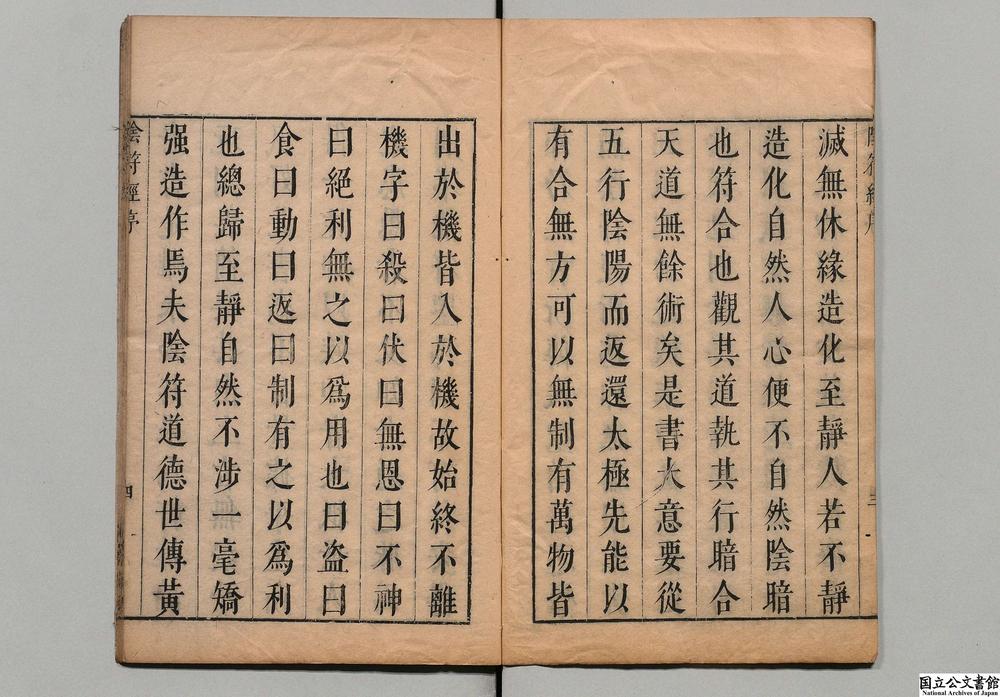 陰符經序
三
滅無休緣造化至靜人若不靜
造化自然人心便不自然陰暗
也符合也觀其道執其行暗合
天道無餘術矣是書大意要從
五行陰陽而返還太極先能以
有合無方可以無制有萬物皆
出於機皆入於機故始終不離
機字曰殺曰伏曰無恩曰不神
曰絕利無之以爲用也曰盗曰
食曰動曰返曰制有之以爲利
也總歸至靜自然不涉一毫矯
强造作焉夫陰符道德世傳黃
陰符經序
四
国立公文書館
National Archives of Japan